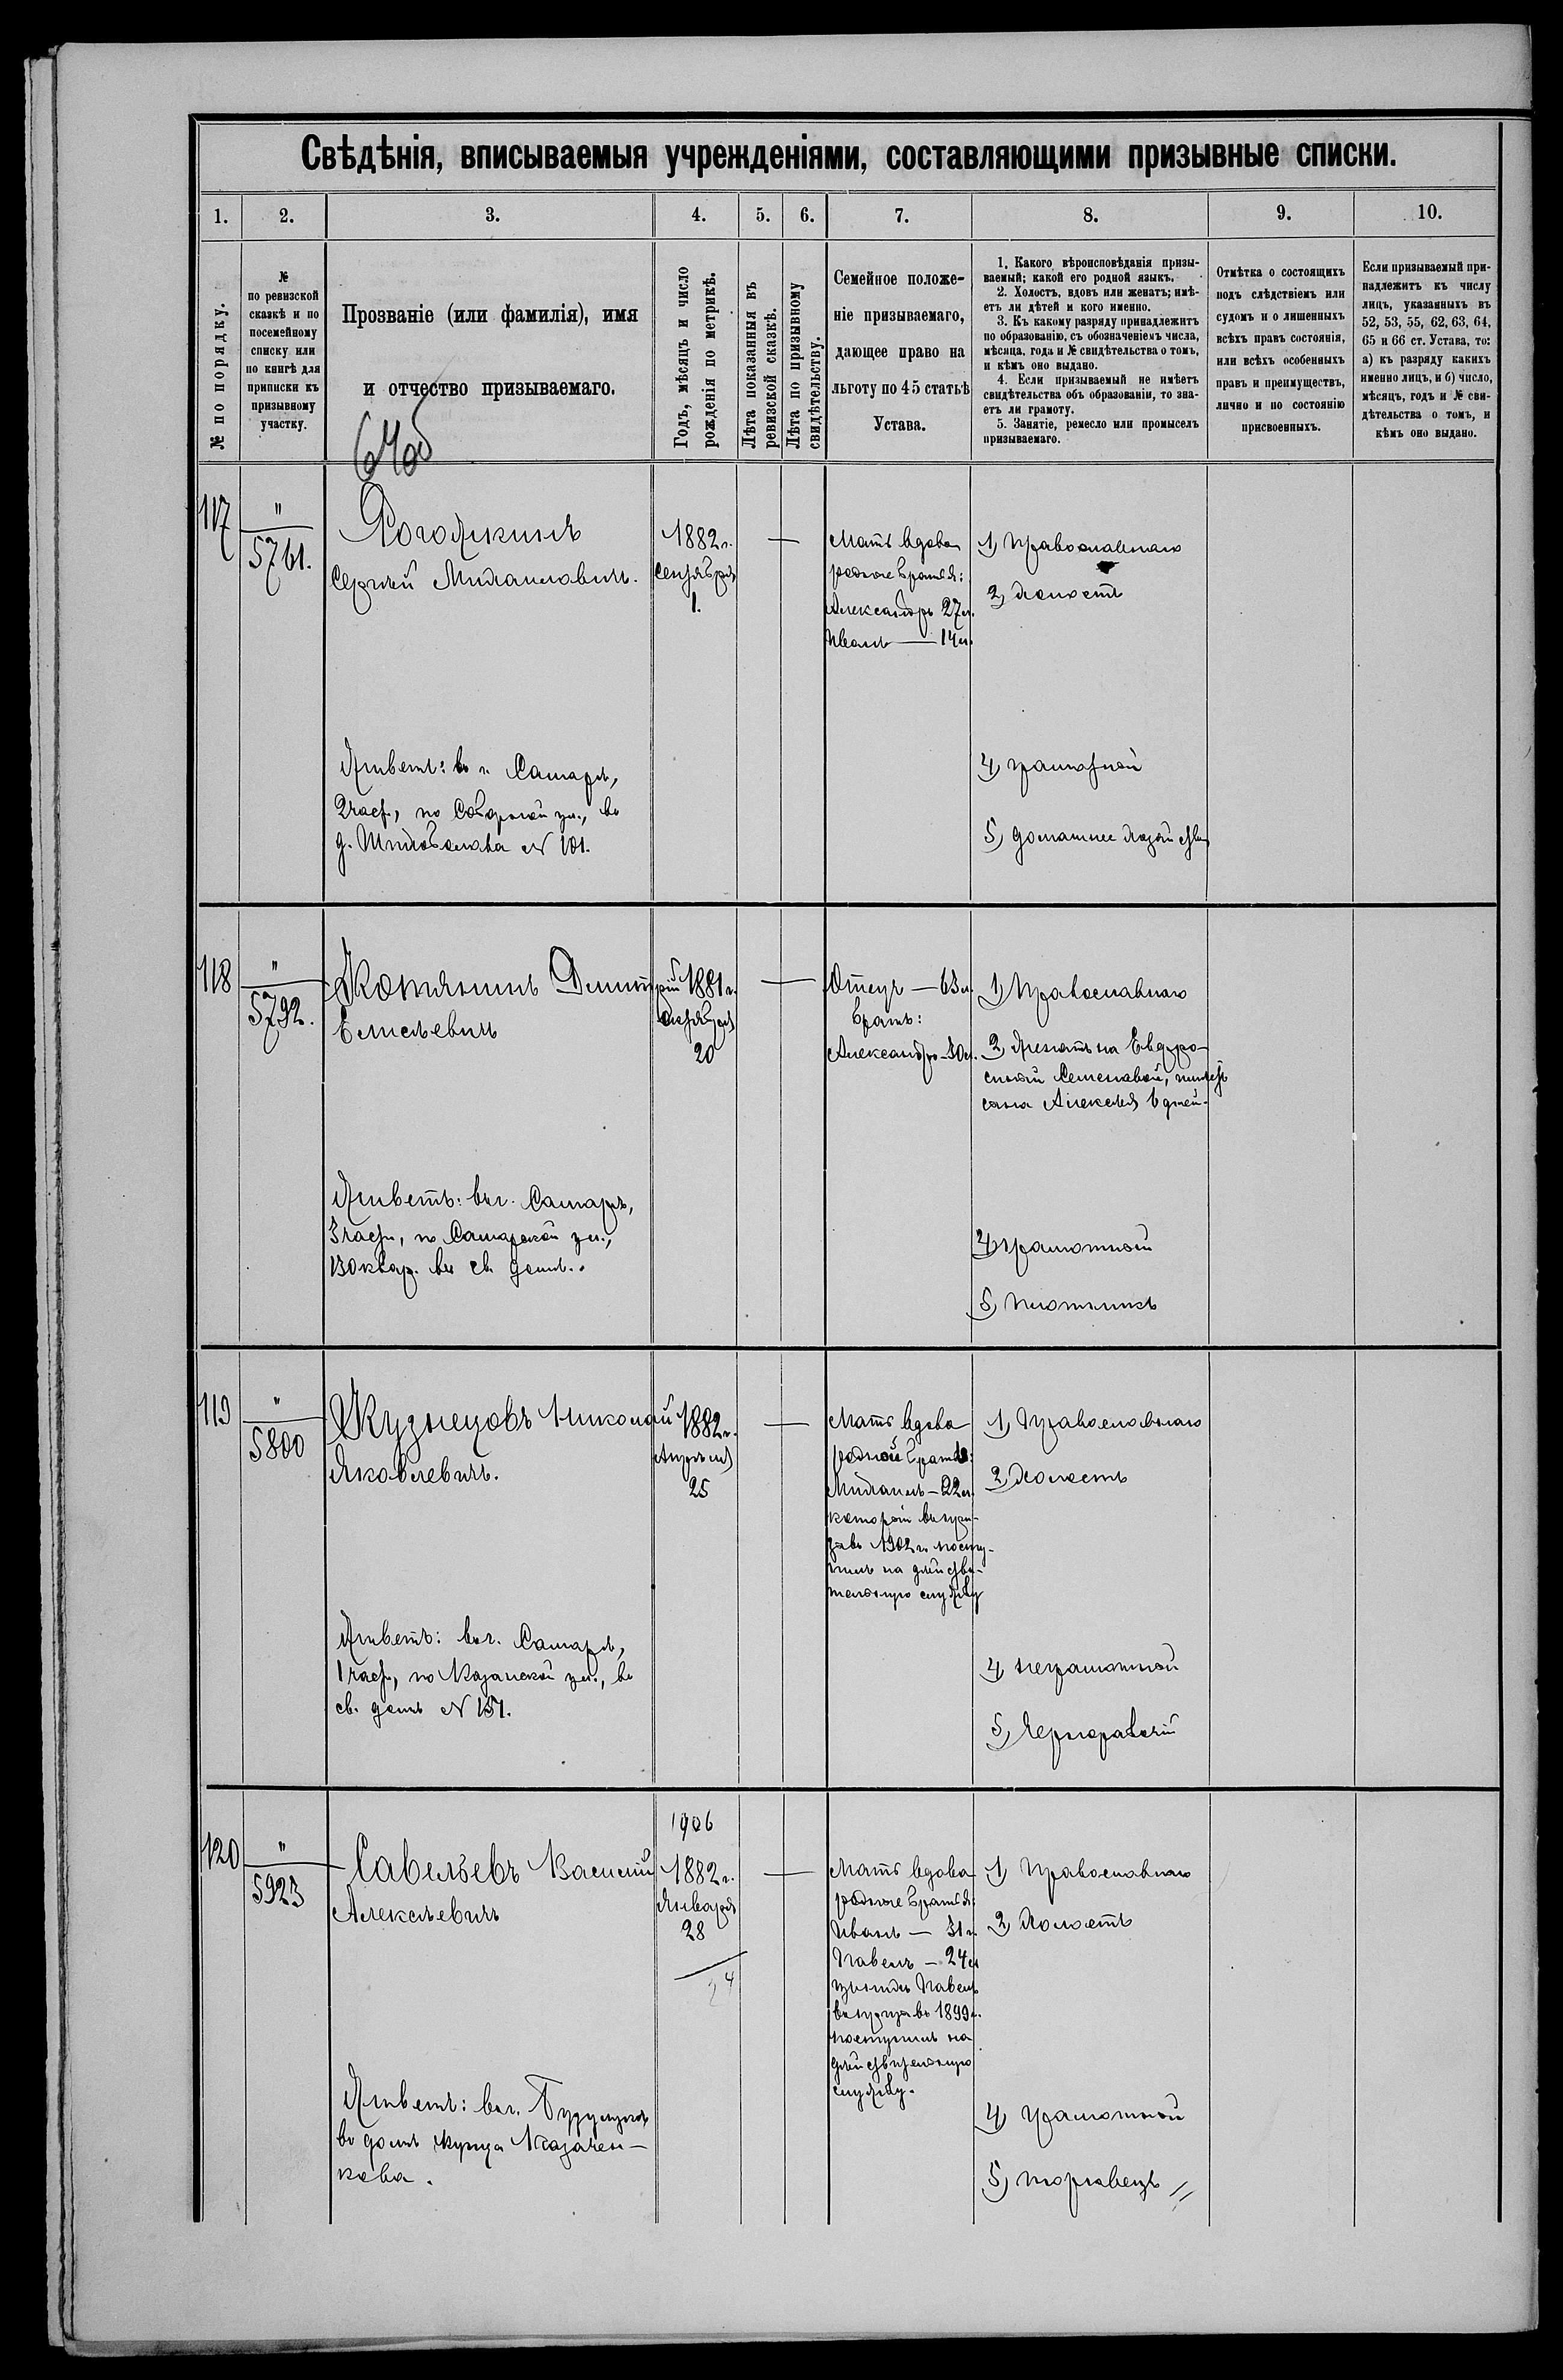 Свѣдѣнія, вписываемыя учрежденіями, составляющими призывные списки.
1. 2. 3. 4. 5. 6. 7. 8. 9. 10.
№ по порядку.
№
по ревизской
сказкѣ и по
посемейному
списку или
по книгѣ для
приписки къ
призывному
участку.
Прозваніе (или фамилія), имя
и отчество призываемаго.
Годъ, мѣсяцъ и число
рожденія по метрикѣ.
Лѣта показанныя въ
ревизской сказкѣ.
Лѣта по призывному
свидѣтельству.
Семейное положе-
ніе призываемаго,
дающее право на
льготу по 45 статьѣ
Устава.
1. Какого вѣроисповѣданія призы-
ваемый; какой его родной языкъ.
2. Холостъ, вдовъ или женатъ; имѣ-
етъ ли дѣтей и кого именно.
3. Къ какому разряду принадлежитъ
по образованію, съ обозначеніемъ числа,
мѣсяца, года и № свидѣтельства о томъ,
и кѣмъ оно выдано.
4. Если призываемый не имѣетъ
свидѣтельства объ образованіи, то зна-
етъ ли грамоту.
5. Занятіе, ремесло или промыселъ
призываемаго.
Отмѣтка о состоящихъ
подъ слѣдствіемъ или
судомъ и о лишенныхъ
всѣхъ правъ состоянія,
или всѣхъ особенныхъ
правъ и преимуществъ,
лично и по состоянію
присвоенныхъ.
Если призываемый при-
надлежитъ къ числу
лицъ, указанныхъ въ
52, 53, 55, 62, 63, 64,
65 и 66 ст. Устава, то:
а) къ разряду какихъ
именно лицъ, и б) число,
мѣсяцъ, годъ и № сви-
дѣтельства о томъ, и
кѣмъ оно выдано.
117
"
5761.
Рогожкинъ
Сергѣй Михаиловичъ.
1882 г.
Сентября
1.
Мать вдова
родные братья:
Александръ 27 л.
Иванъ — 14 л.
1) Православнаго
2) Холостъ
Живетъ: въ г. Самарѣ,
2 част., по Соборной ул., въ
д. № 101.
4) грамотный
5) домашнее хозяйство
118
"
5792.
Котянинъ Димитрій
Елисѣевичъ
1881 г.
Октября
20
Отецъ — 63 л.
Братъ:
Александръ — 30 л.
1) Православнаго
2) Женатъ на Евфро-
синьи Семеновой, имѣетъ
сына Алексѣя 6 дней.
Живетъ: въ г. Самарѣ,
3 части, по Самарской ул.,
130 квар. въ св. домѣ.
4) грамотный
5) плотникъ
119
"
5800
Кузнецовъ Николай
Яковлевичъ.
1882 г.
Апрѣля
25
Мать вдова
родной братъ:
Михаилъ — 22 л.
который въ при-
зывъ 1902 г. посту-
пилъ на дѣйстви-
тельную службу
1) Православнаго
2) Холостъ
Живетъ: въ г. Самарѣ,
1 части, по Казанской ул., въ
св. домѣ № 151.
4) неграмотный
5) Чернорабочій
120
"
5923
Савельевъ Василій
Алексѣевичъ
1906
1882 г.
Января
28
24
Мать вдова
родные братья:
Иванъ — 31 г.
Павелъ — 24 л.
изъ нихъ Павелъ
въ призывъ 1899 г.
поступилъ на
дѣйствительную
службу.
1) Православнаго
2) Холостъ
Живетъ: въ г. Бузулукѣ
въ домѣ купца Казачен-
кова.
4) грамотный
5) торговецъ